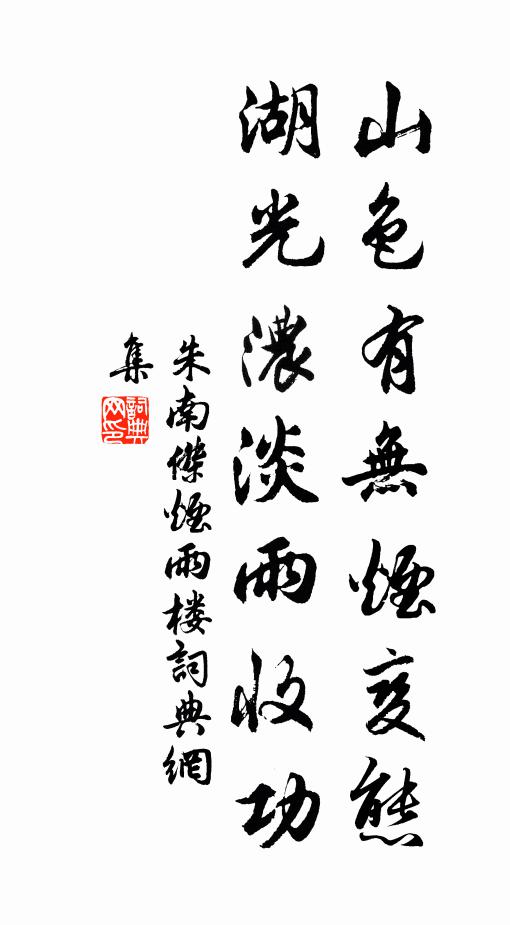 山色有無煙變態
湖光濃淡雨收功
朱南傑煙雨楼詞典網
集
詞典網印